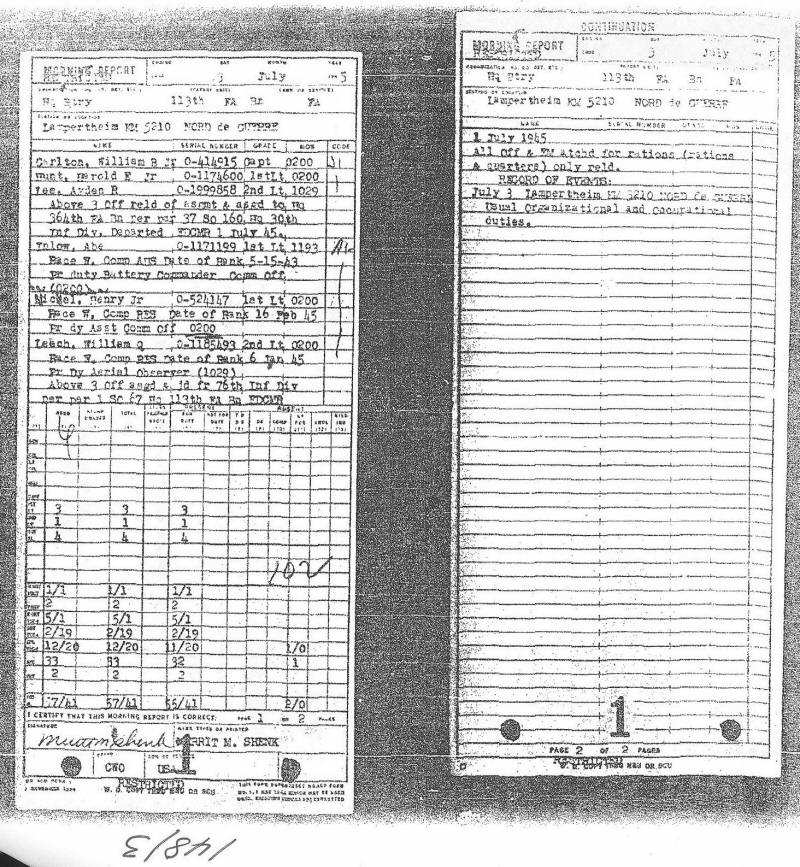 MORNING REPORT
ENDING DAY MONTH YEAR
3 July 5
Hq Btry 113th FA Bn FA
STATION OR LOCATION
Lampertheim KM 5210 NORD de GUERRE
NAME SERIAL NUMBER GRADE MOS CODE
Carlton, William B Jr 0-414915 Capt 0200
Hunt, Harold E Jr 0-1174600 1stLt 0200
Lee, Ayden R 0-1999858 2nd Lt 1029
Above 3 Off reld of asgmt & asgd to Hq
364th FA Bn per par 37 SO 160, Hq 30th
Inf Div. Departed EDCMR 1 July 45.
Inlow, Abe 0-1171199 1st Lt 1193
Race W, Comp AUS Date of Rank 5-15-43
Pr duty Battery Commander Comm Off
(0200)
Nickel, Henry Jr 0-524147 1st Lt 0200
Race W, Comp RES Date of Rank 16 Feb 45
Pr dy Asst Comm Off 0200
Leech, William Q 0-1185493 2nd Lt 0200
Race W, Comp RES Date of Rank 6 Jan 45
Pr Dy Aerial Observer (1029)
Above 3 Off asgd & jd fr 76th Inf Div
per par 1 SO 67 Hq 113th FA Bn EDCMR
PRESENT ABSENT
TOTAL
3 3 3
1 1 1
4 4 4
102
1/1 1/1 1/1
2 2 2
5/1 5/1 5/1
2/19 2/19 2/19
12/20 12/20 11/20 1/0
33 33 32 1
2 2 2
57/41 57/41 55/41 2/0
I CERTIFY THAT THIS MORNING REPORT IS CORRECT. PAGE 1 OF 2 PAGES
SIGNATURE NAME TYPED OR PRINTED
Shenk RRIT M. SHENK
1
CWO USA
RESTRICTED
CONTINUATION
MORNING REPORT
3 July 5
Hq Btry 113th FA Bn FA
STATION OR LOCATION
Lampertheim KM 5210 NORD de GUERRE
NAME SERIAL NUMBER GRADE MOS CODE
1 July 1945
All Off & EM Atchd for rations (rations
& quarters) only reld.
RECORD OF EVENTS:
July 3 Lampertheim KM 5210 NORD de GUERRE
Usual Organizational and occupational
duties.
1
PAGE 2 OF 2 PAGES
RESTRICTED
148/3